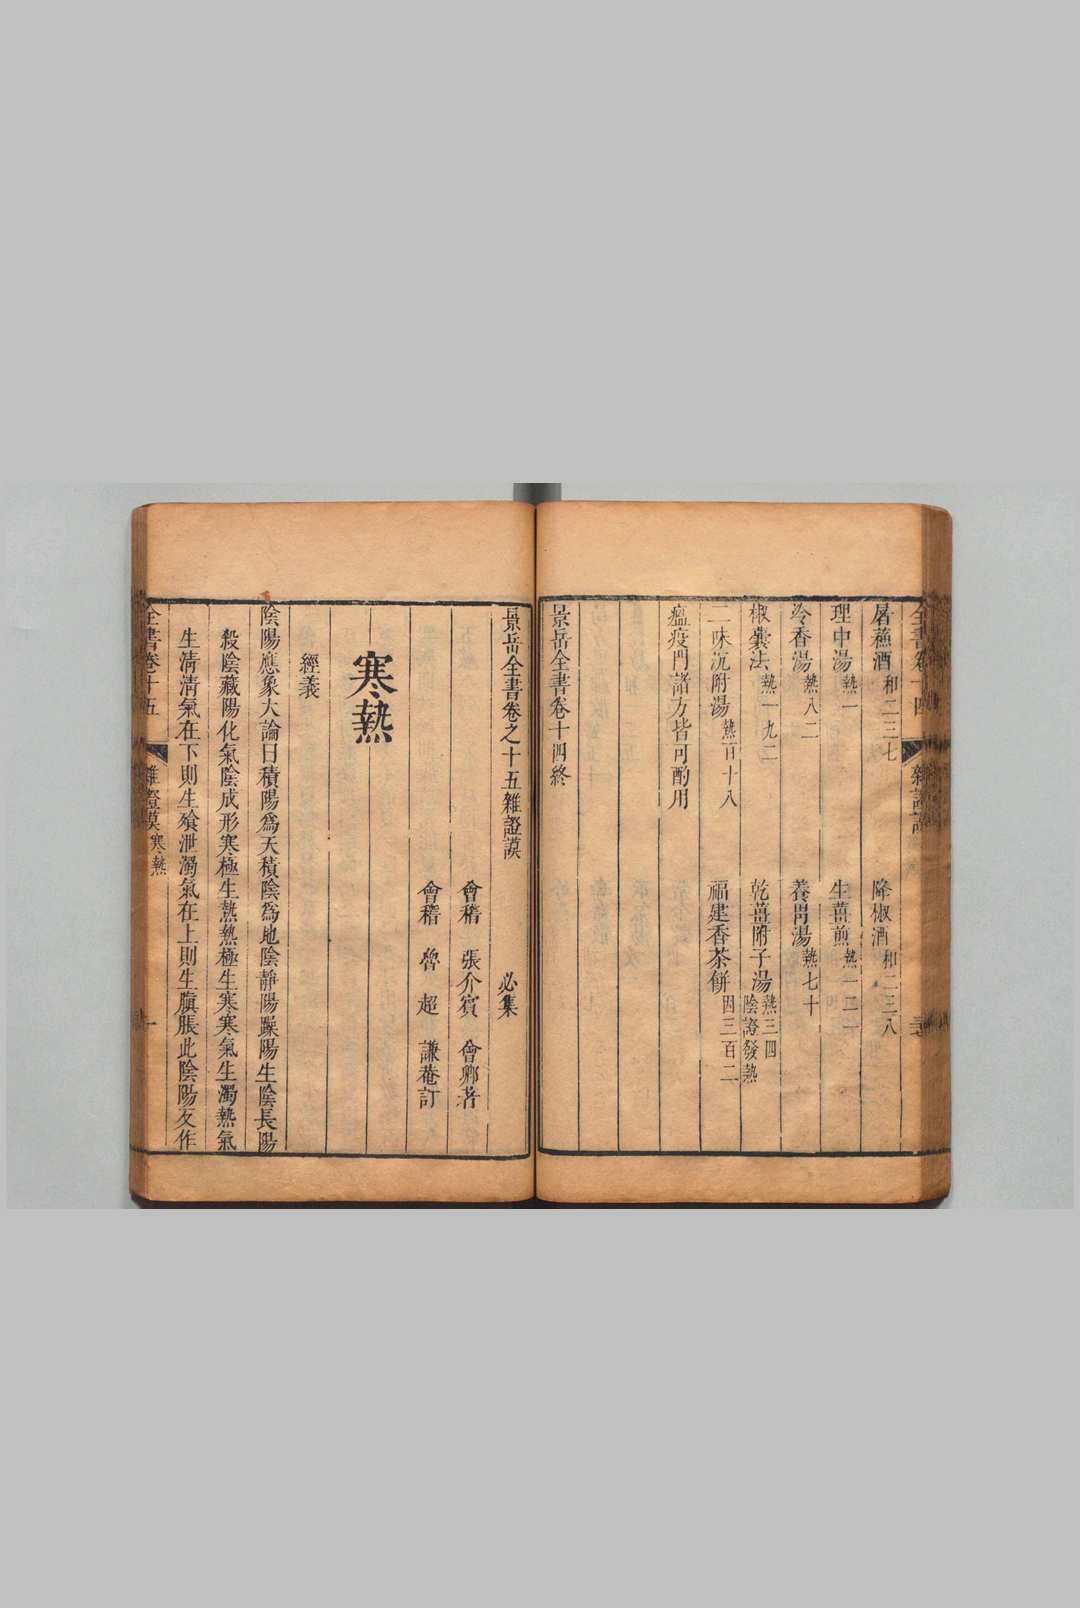 屠蘇酒 和二三七 降椒酒 和二三八
理中湯 熱一 生薑煎 熱一二一
冷香湯 熱八二 養胃湯 熱七十
椒囊法 熱一九二 乾薑附子湯 熱三四 陰證發熱
二味沉附湯 熱百十八 福建香茶餅 因三百二
瘟疫門諸方皆可酌用
景岳全書卷十四終
景岳全書卷之十五雜證謨 必集
會稽 張介賓 會卿著
會稽 魯超 謙菴訂
寒熱
經義
陰陽應象大論曰積陽為天積陰為地陰靜陽躁陽生陰長陽
殺陰藏陽化氣陰成形寒極生熱熱極生寒寒氣生濁熱氣
生清清氣在下則生飱泄濁氣在上則生䐜脹此陰陽反作
全書卷十五 雜證謨 寒熱 一